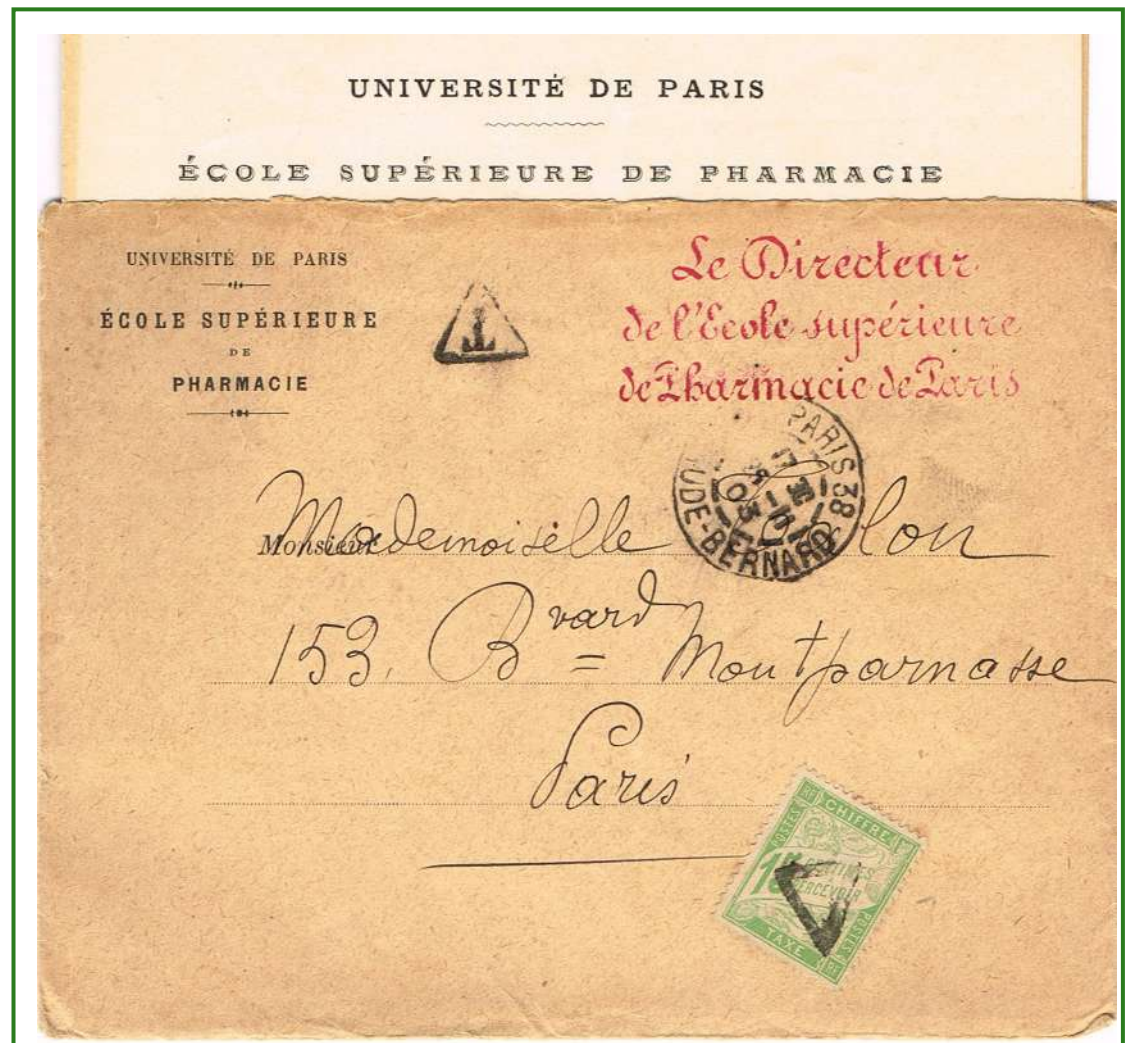 UNIVERSITÉ DE PARIS
ÉCOLE SUPÉRIEURE DE PHARMACIE
UNIVERSITÉ DE PARIS
ÉCOLE SUPÉRIEURE
DE
PHARMACIE
T
Le Directeur
de l'Ecole supérieure
de Pharmacie de Paris
PARIS 38
UDE-BERNARD
03
Monsieur
Mademoiselle
153, Bvard Montparnasse
Paris
CHIFFRE
POSTES
CENTIMES
PERCEVOIR
TAXE
POSTES
RF